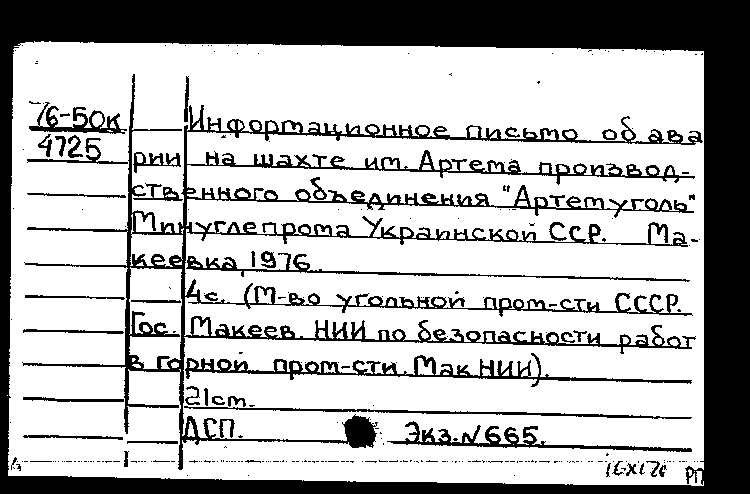 76-50к
4725
Информационное письмо об ава
рии на шахте им. Артема производ-
ственного объединения "Артемуголь"
Минуглепрома Украинской ССР. Ма-
кеевка, 1976.
4с. (М-во угольной пром-сти СССР.
Гос. Макеев. НИИ по безопасности работ
в горной пром-сти. Мак НИИ).
21cm.
ДСП. Экз. N 665.
РП